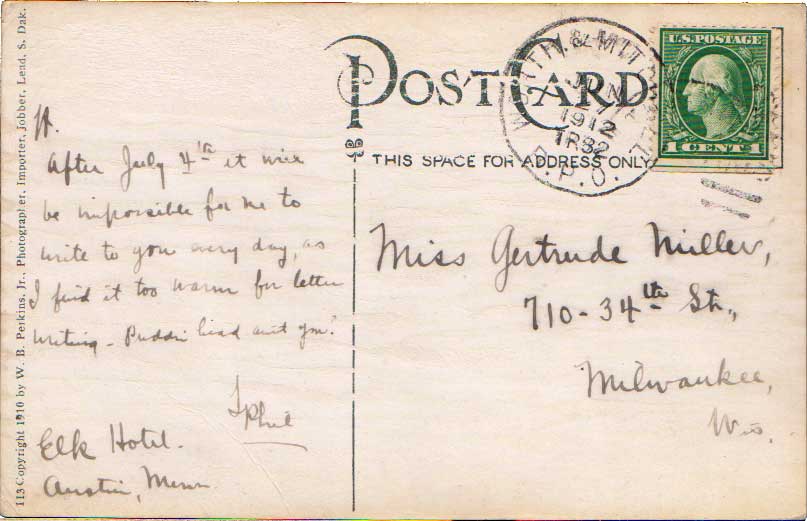 113 Copyright 1910 by W. B. Perkins, Jr., Photographer, Importer, Jobber, Lead, S. Dak.
After July 4th it will
be impossible for me to
write to you every day, as
I find it too warm for letter
writing - Puddin head aint you?
Phil
Elk Hotel.
Austin, Minn
POST CARD
THIS SPACE FOR ADDRESS ONLY
& MIT
JUN
27
1912
TR 82
R.P.O.
U.S. POSTAGE
1 CENT 1
Miss Gertrude Miller,
710-34th St.,
Milwaukee,
Wis.